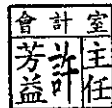 會計室
主任
許
芳益